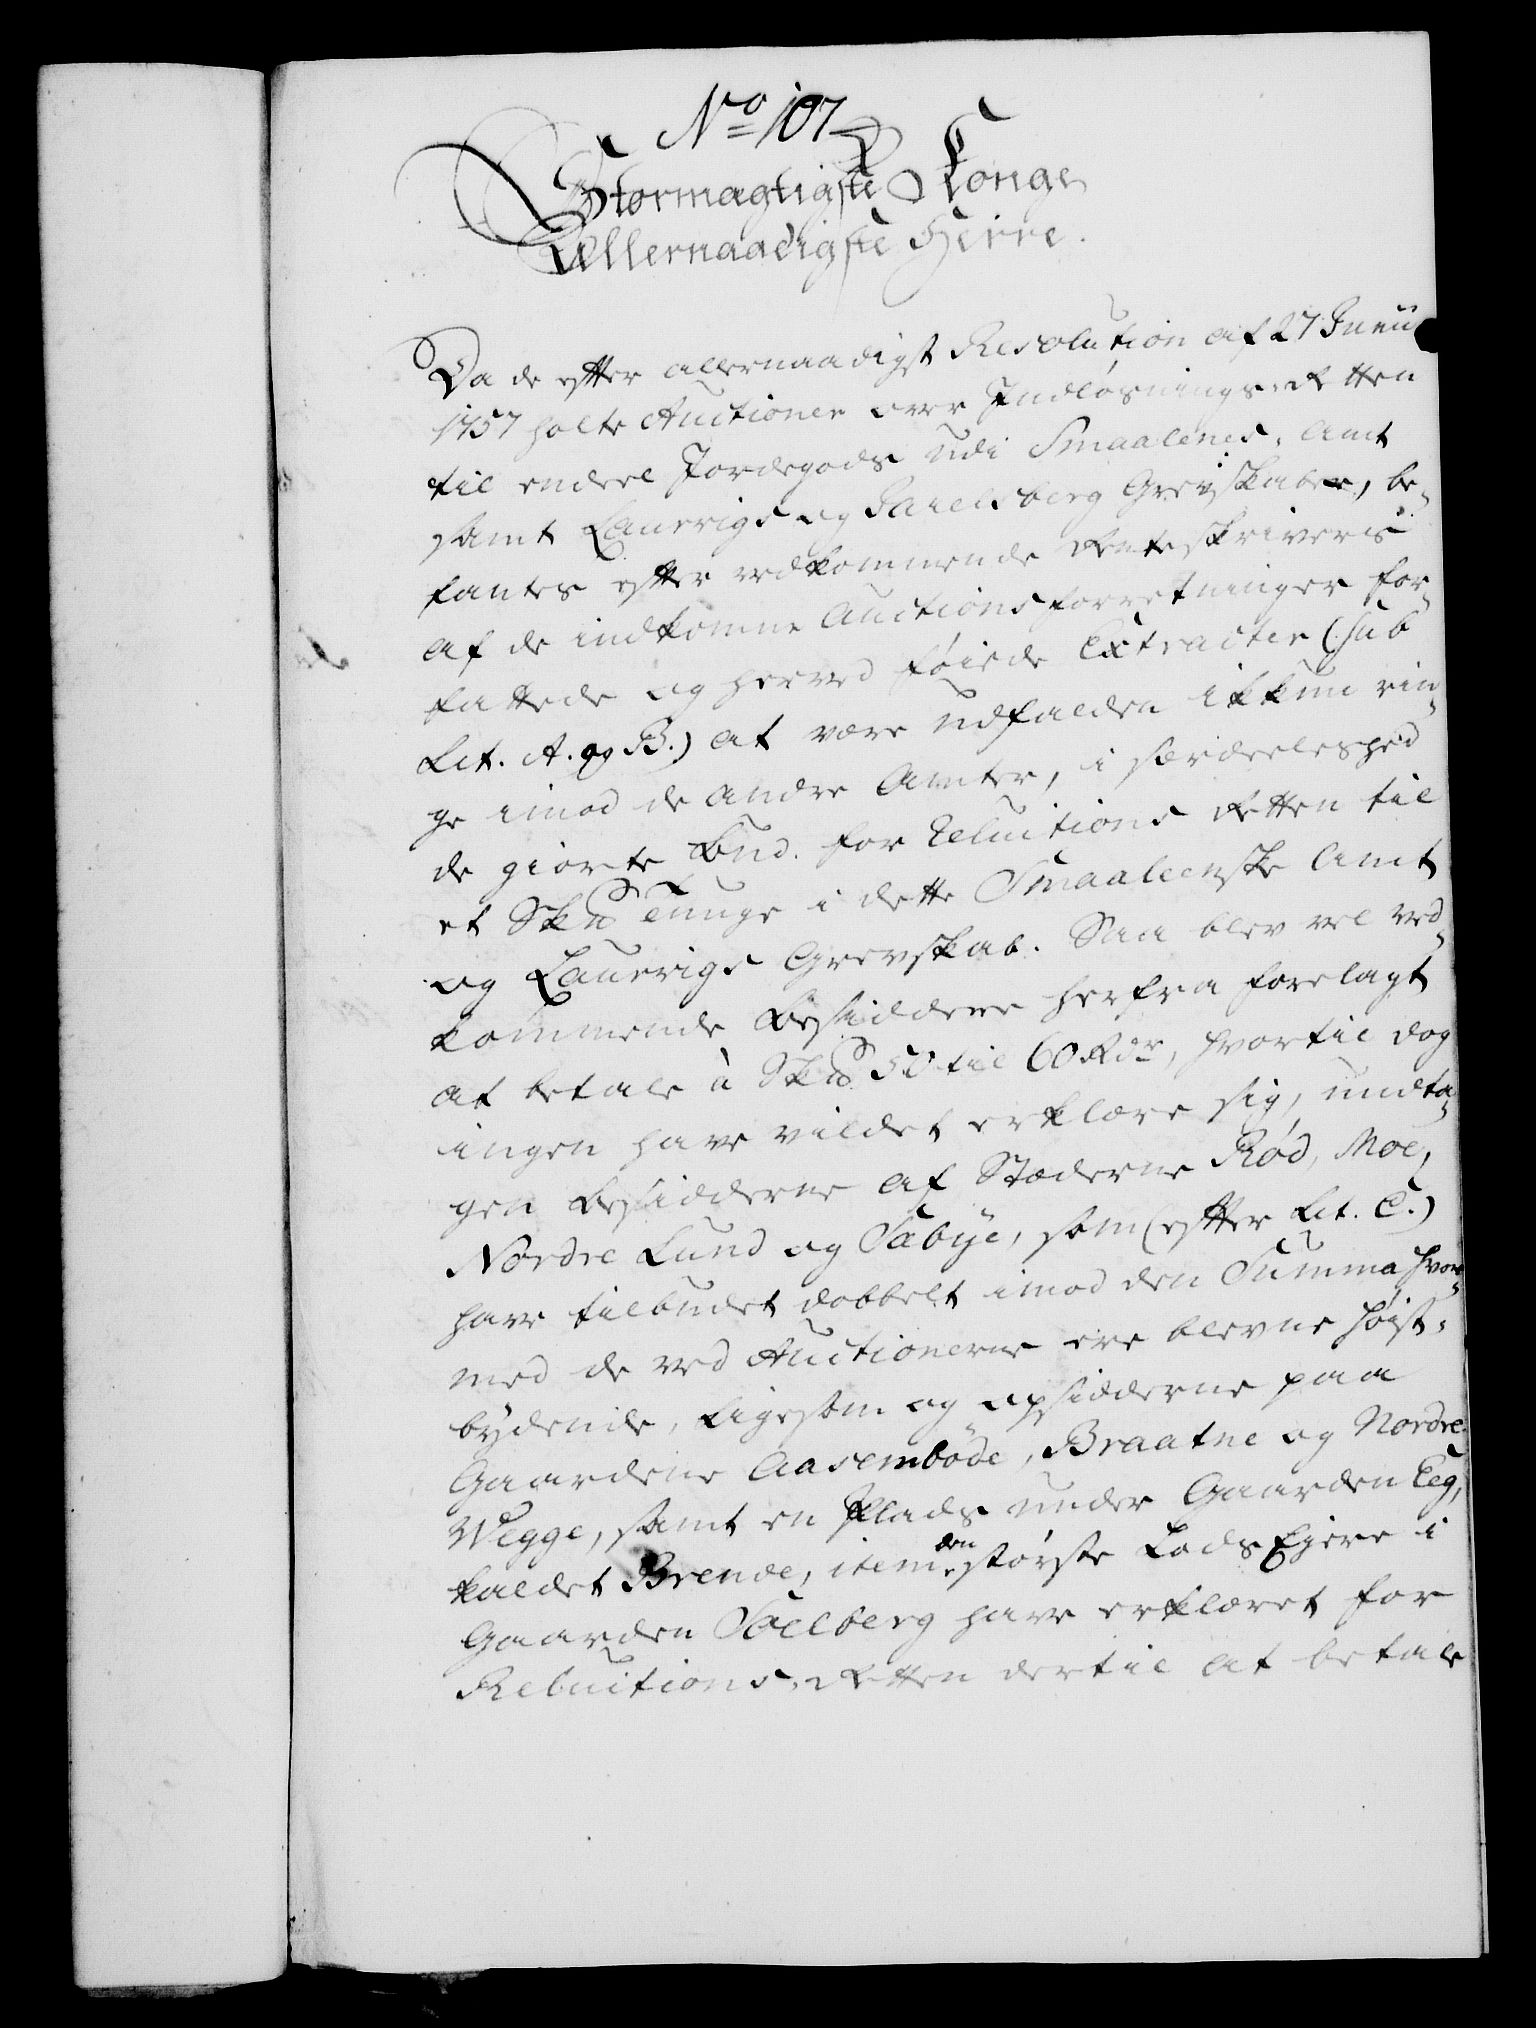 No 107
Stormægtigste Konge
Allernaadigste Herre.
Da de efter allernaadigst Resolution af 27 Junii
1757 holte Auctioner over Indløsnings-Retten
til endeel Jordegods udi Smaalenes-Amt
samt Laurvigs og Jarlsberg Grevskaber, be-
fantes efter vedkommende Renteskriveris
af de indkomne Auctionsforretninger for-
fattede og herved føiede Extracter (sub
Lit. A. og B.) at være udfalden ikkun rin-
ge imod de andre Amter, i særdeeleshed
de giorte Bud for Reluitions Retten til
et Skd Tunge i dette Smaaleenske Amt
og Laurvigs Grevskab. Saa blev vel ved-
kommende Besiddere herfra forelagt
at betale à Skd 50 til 60 Rdr, hvortil dog
ingen have vildet erklære sig, undta-
gen Besidderne af Stæderne Rød, Moe,
Nordre Lund og Sæbye, som (efter Lit. C.)
have tilbudet dobbelt imod den Summa, hvor-
med de ved Auctionerne ere blevne høist-
bydende, ligesom og opsidderne paa
Gaardene Aasembøde, Braatne og Nordre
Wegge, samt en Plads under Gaarden Teg,
kaldet Brende, item den største Lods Ejere i
Gaarden Solberg have erklæret for
Reluitions-Retten dertil at betale